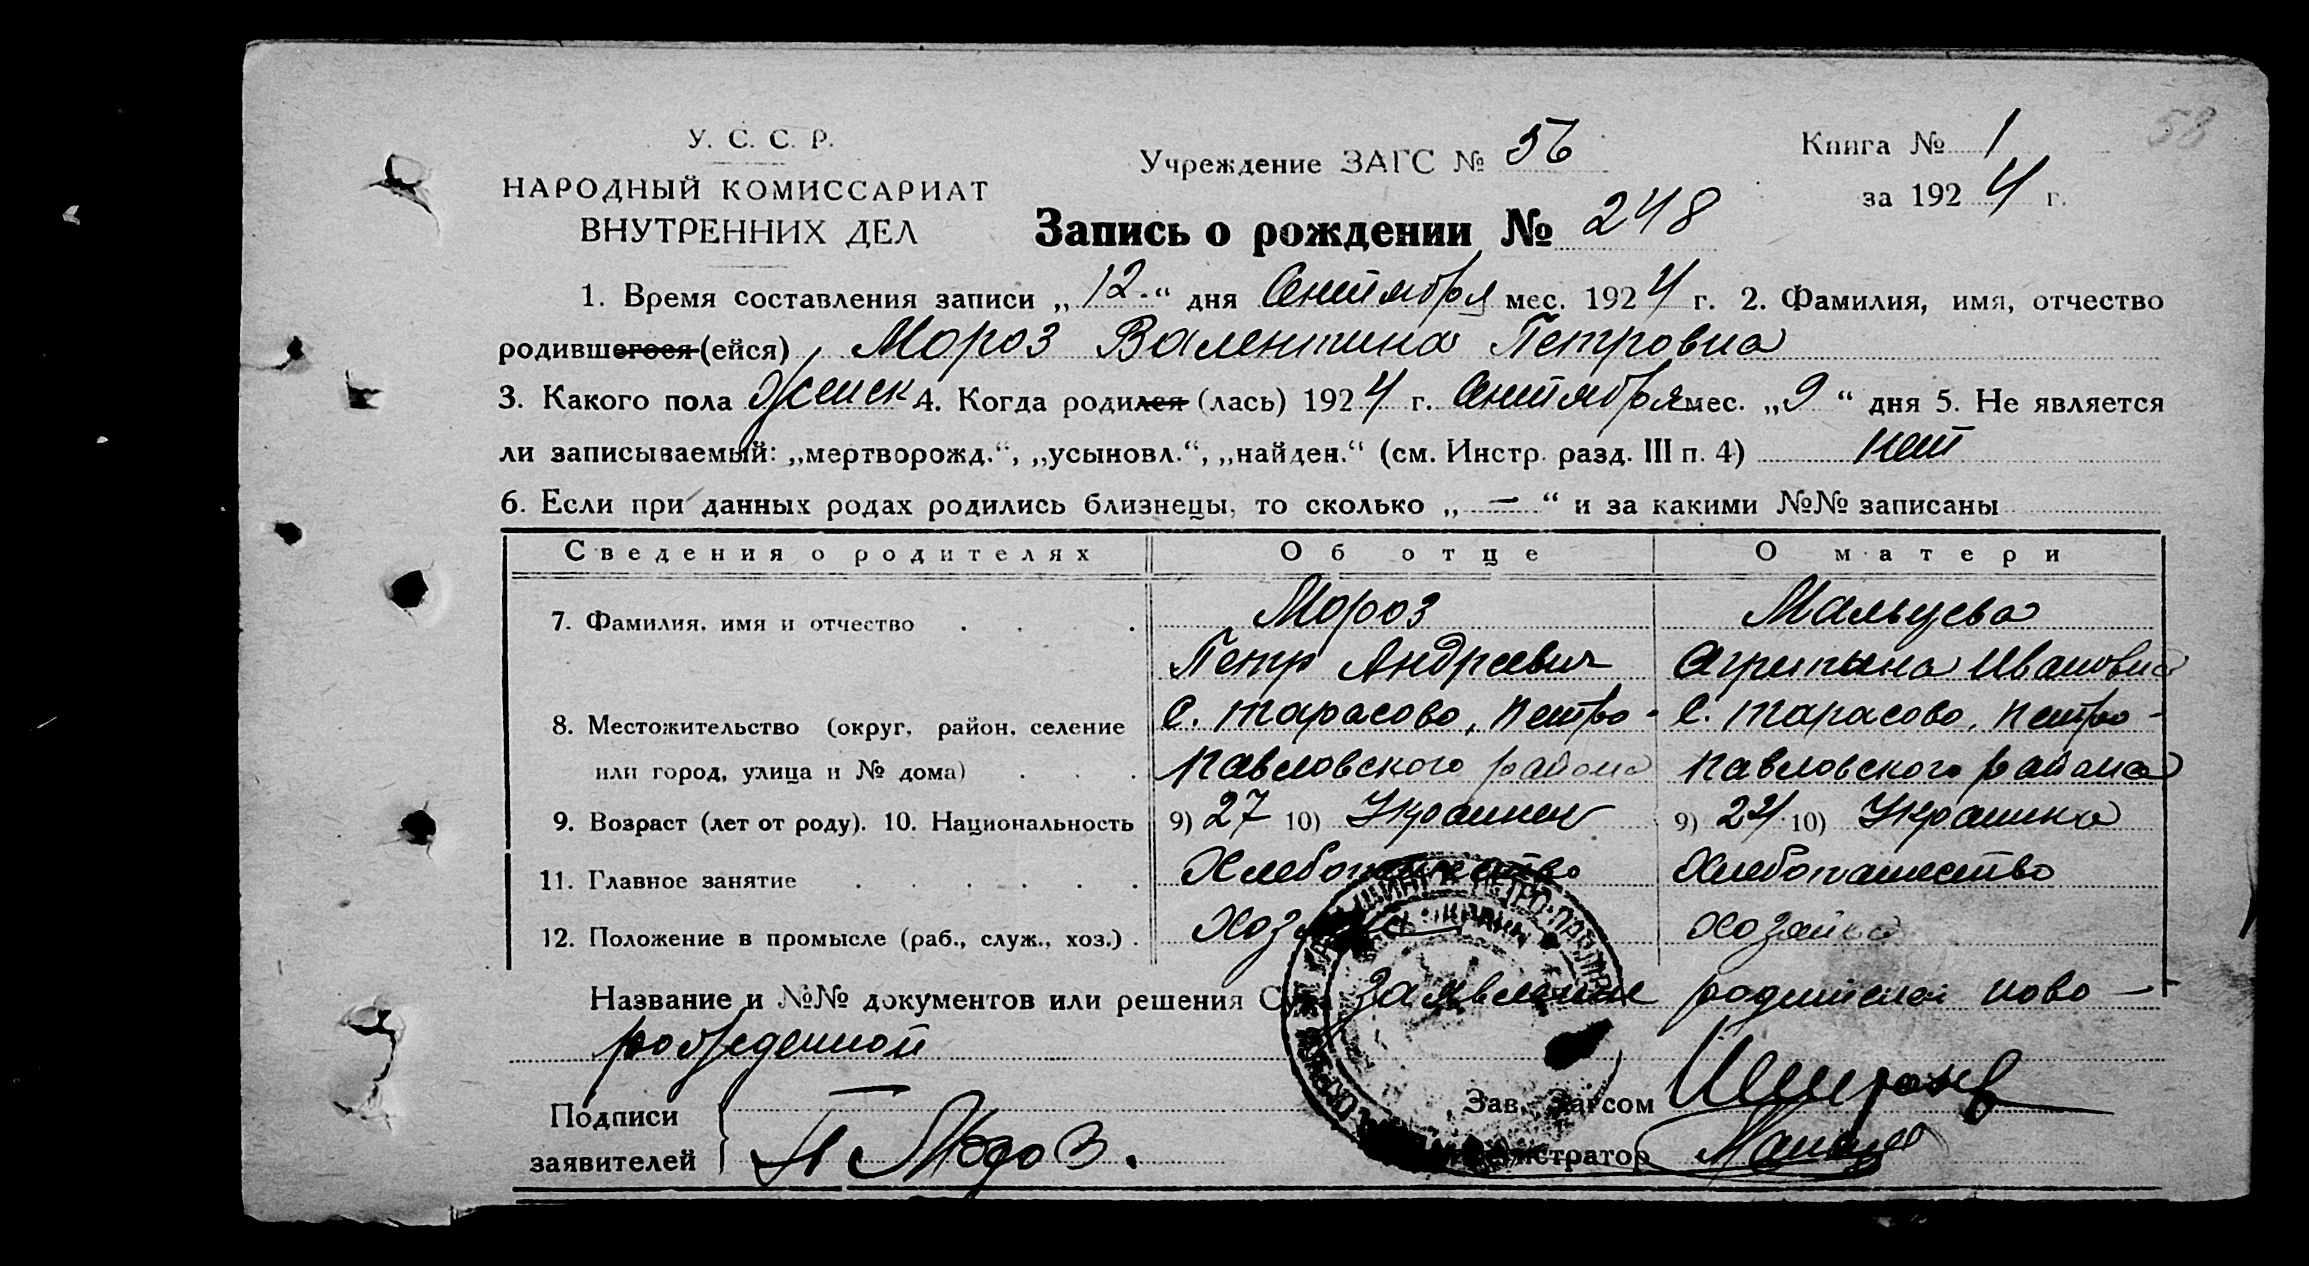 58
У. С. С. Р.
НАРОДНЫЙ КОМИССАРИАТ
ВНУТРЕННИХ ДЕЛ
Учреждение ЗАГС № 56
Книга № 1
за 1924 г.
Запись о рождении № 248
1. Время составления записи „12.“ дня Сентября мес. 1924 г. 2. Фамилия, имя, отчество
родившегося (ейся) Мороз Валентина Петровна
3. Какого пола женск 4. Когда родился (лась) 1924 г. Сентября мес. „9“ дня 5. Не является
ли записываемый: „мертворожд.“, „усыновл.“, „найден.“ (см. Инстр. разд. III п. 4) нет
6. Если при данных родах родились близнецы, то сколько „—“ и за какими №№ записаны
Сведения о родителях Об отце О матери
7. Фамилия, имя и отчество . . . Мороз Мальцева
Петр Андреевич Агрипына Ивановна
8. Местожительство (округ, район, селение С. Тарасово, Петро- С. Тарасово, Петро-
или город, улица и № дома) . . . павловского района павловского района
9. Возраст (лет от роду). 10. Национальность 9) 27 10) Украинец 9) 24 10) Украинка
11. Главное занятие . . . . . . Хлебопашество Хлебопашество
12. Положение в промысле (раб., служ., хоз.) . Хозяин Хозяйка
Название и №№ документов или решения Заявление родителей ново-
рожденной
Подписи
заявителей П Мороз.
Зав. Загсом
Регистратор